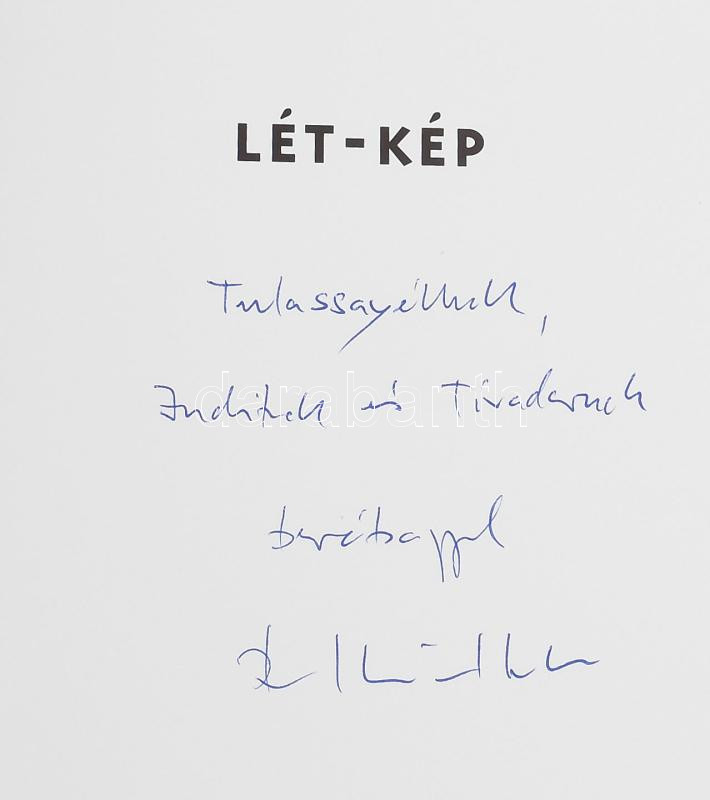 LÉT-KÉP
Tulassayéknak,
Juditnak és Tivadarnak
barátsággal
darabanth